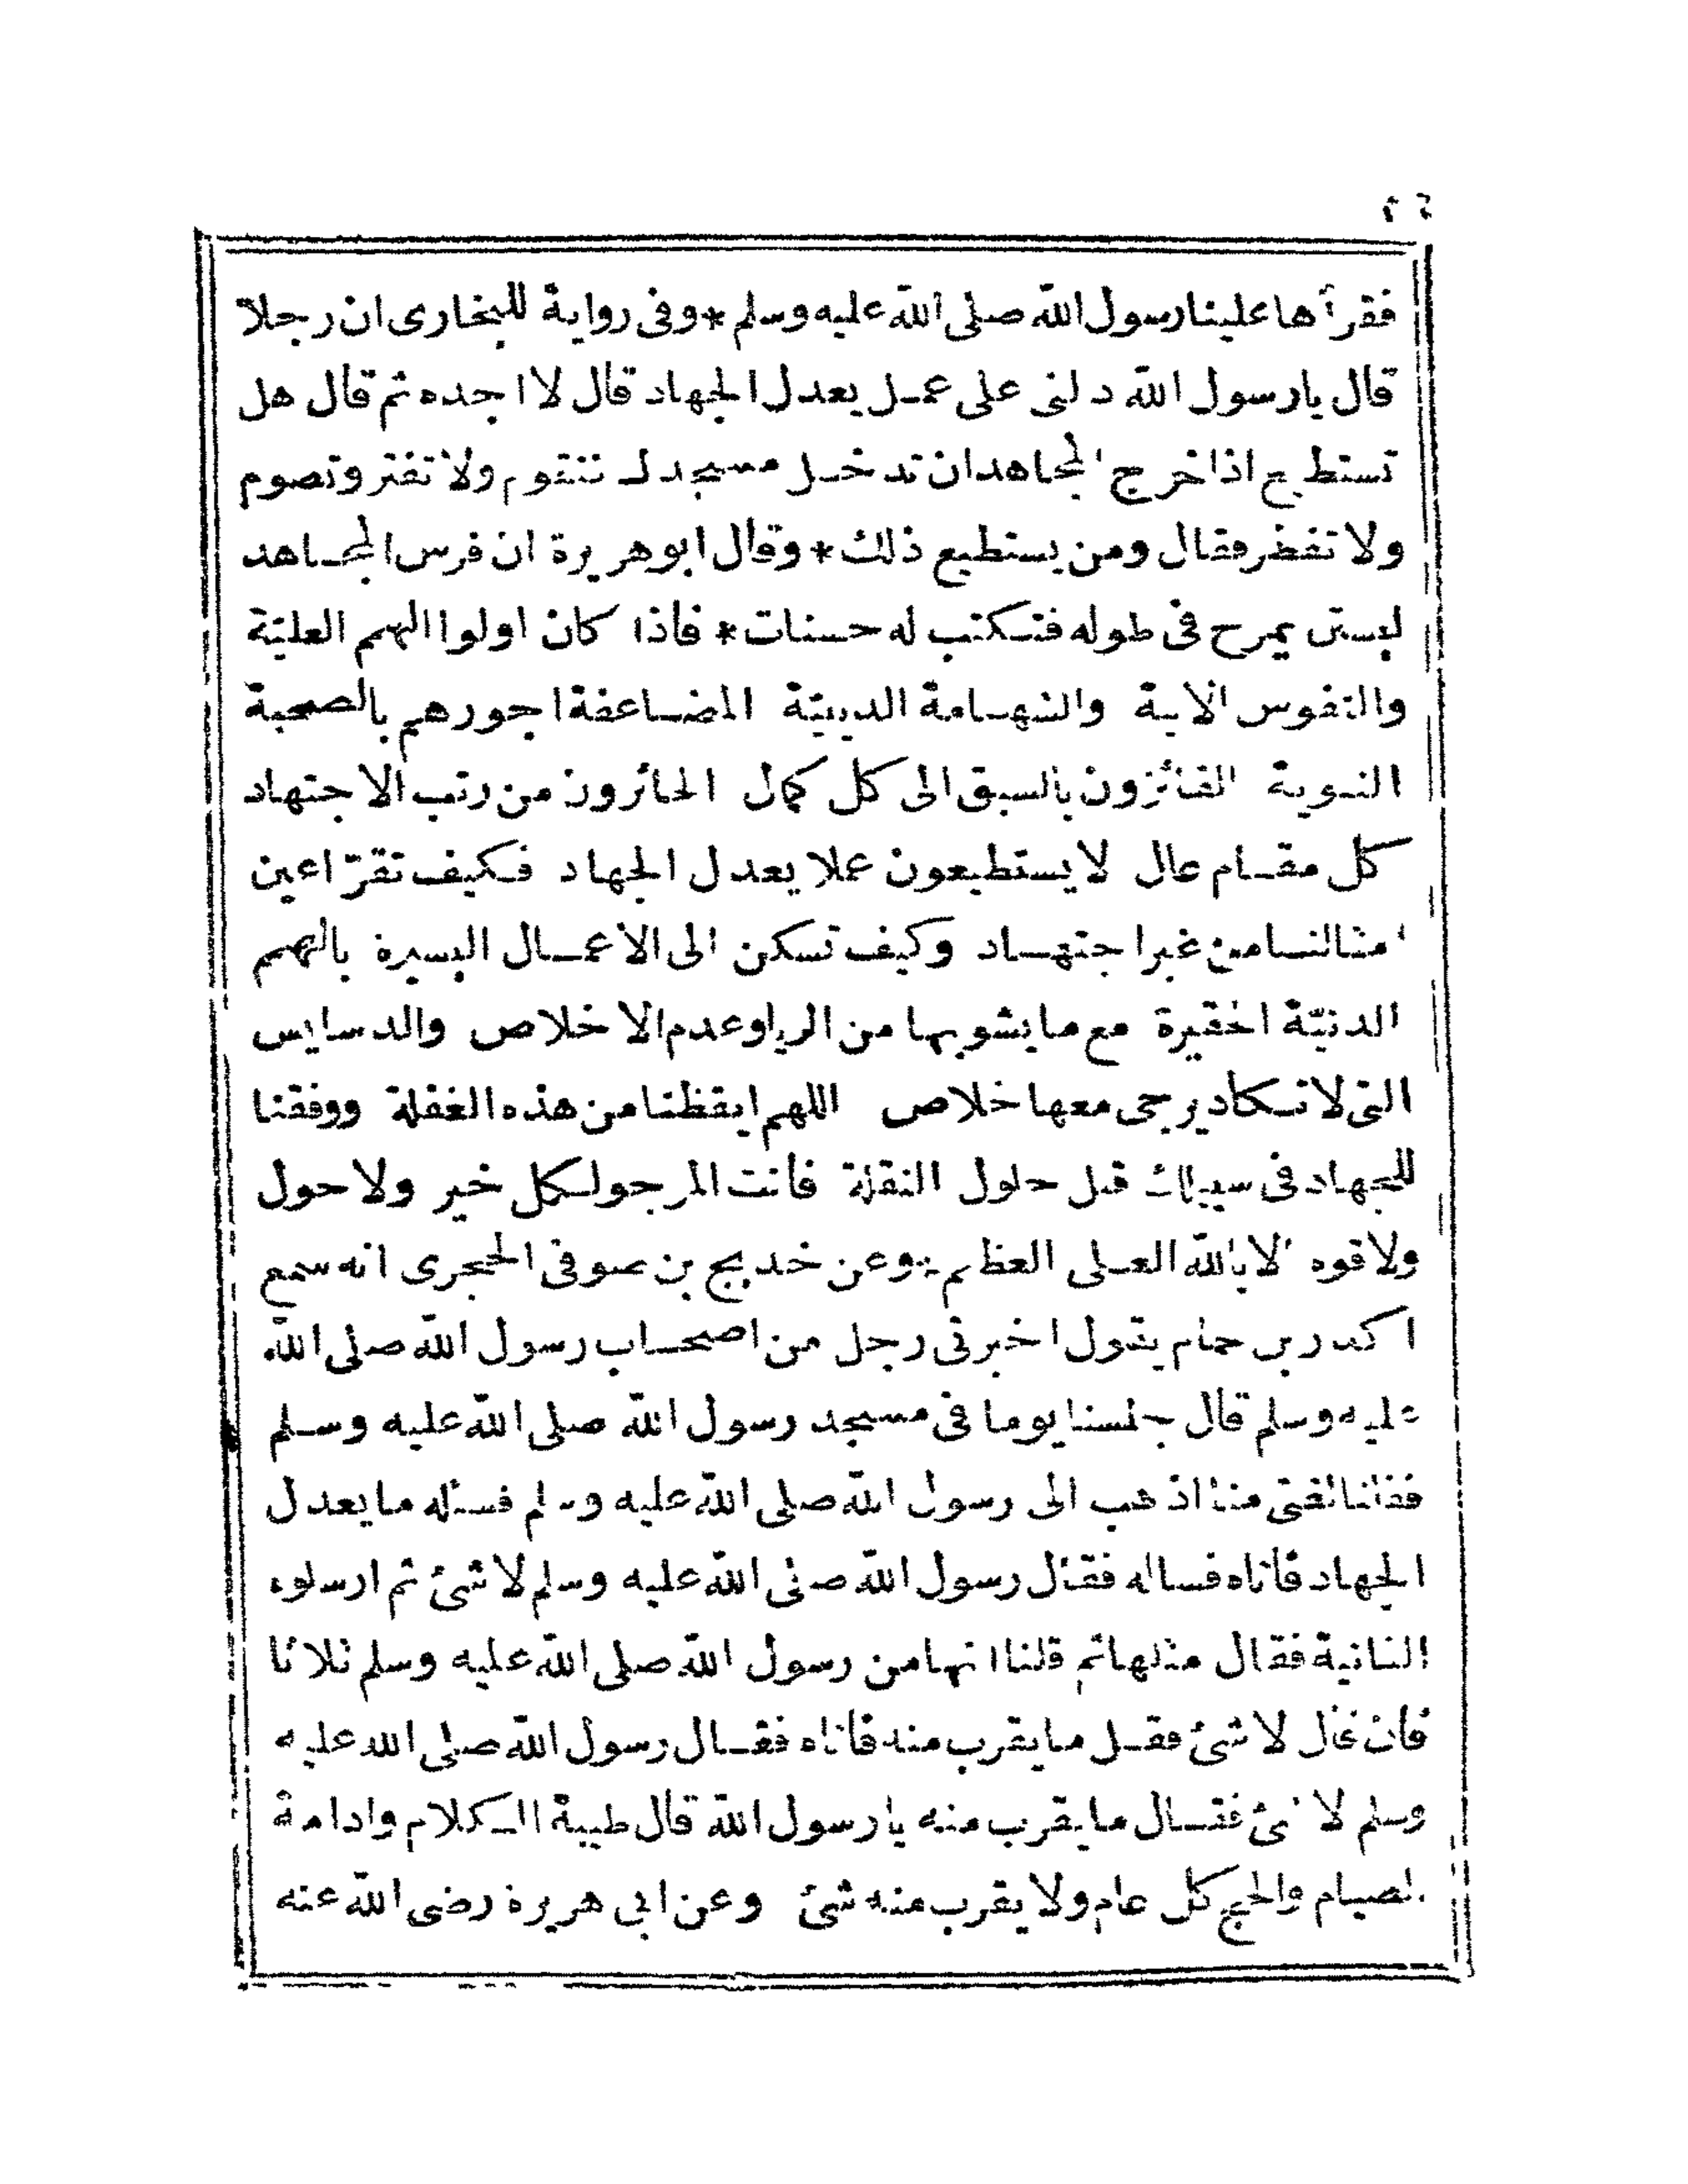 فقرأها علينا رسول الله صلى الله عليه وسلم * وفى رواية للبخارى ان رجلا
قال يارسول الله دلنى على عمل يعدل الجهاد قال لا اجده ثم قال هل
تستطيع اذا خرج المجاهد ان تدخل مسجدك فتقوم ولا تفتر وتصوم
ولا تفطر فقال ومن يستطيع ذلك * وقال ابو هريرة ان فرس المجاهد
ليستن يمرح فى طوله فتكتب له حسنات * فاذا كان اولوا الهمم العليّة
والنفوس الابية والشهامة الدينيّة المضاعفة اجورهم بالصحبة
النبوية الفائزون بالسبق الى كل كمال الحائزون من رتب الاجتهاد
كل مقام عال لا يستطيعون عملا يعدل الجهاد فكيف تقرّ اعين
امثالنا من غير اجتهاد وكيف تسكن الى الاعمال اليسيرة بالهمم
الدنيّة الحقيرة مع ما يشوبها من الريا وعدم الاخلاص والدسايس
التى لا تكاد يرجى معها خلاص اللهم ايقظنا من هذه الغفلة ووفقنا
للجهاد فى سبيلك قبل حلول النقلة فانت المرجو لكل خير ولا حول
ولا قوه الا بالله العلى العظيم * وعن خديج بن صوفى الحجرى انه سمع
اكدر بن حمام يقول اخبرنى رجل من اصحاب رسول الله صلى الله
عليه وسلم قال جلسنا يوما فى مسجد رسول الله صلى الله عليه وسلم
فقلنا لفتى منا اذهب الى رسول الله صلى الله عليه وسلم فسئله ما يعدل
الجهاد فاتاه فساله فقال رسول الله صلى الله عليه وسلم لا شئ ثم ارسلوه
الثانية فقال مثلها ثم قلنا انها من رسول الله صلى الله عليه وسلم ثلاثا
فان قال لا شئ فقل ما يقرب منه فاتاه فقال رسول الله صلى الله عليه
وسلم لا شئ فقال ما يقرب منه يا رسول الله قال طيبة الكلام وادامة
الصيام والحج كل عام ولا يقرب منه شئ وعن ابى هريرة رضى الله عنه